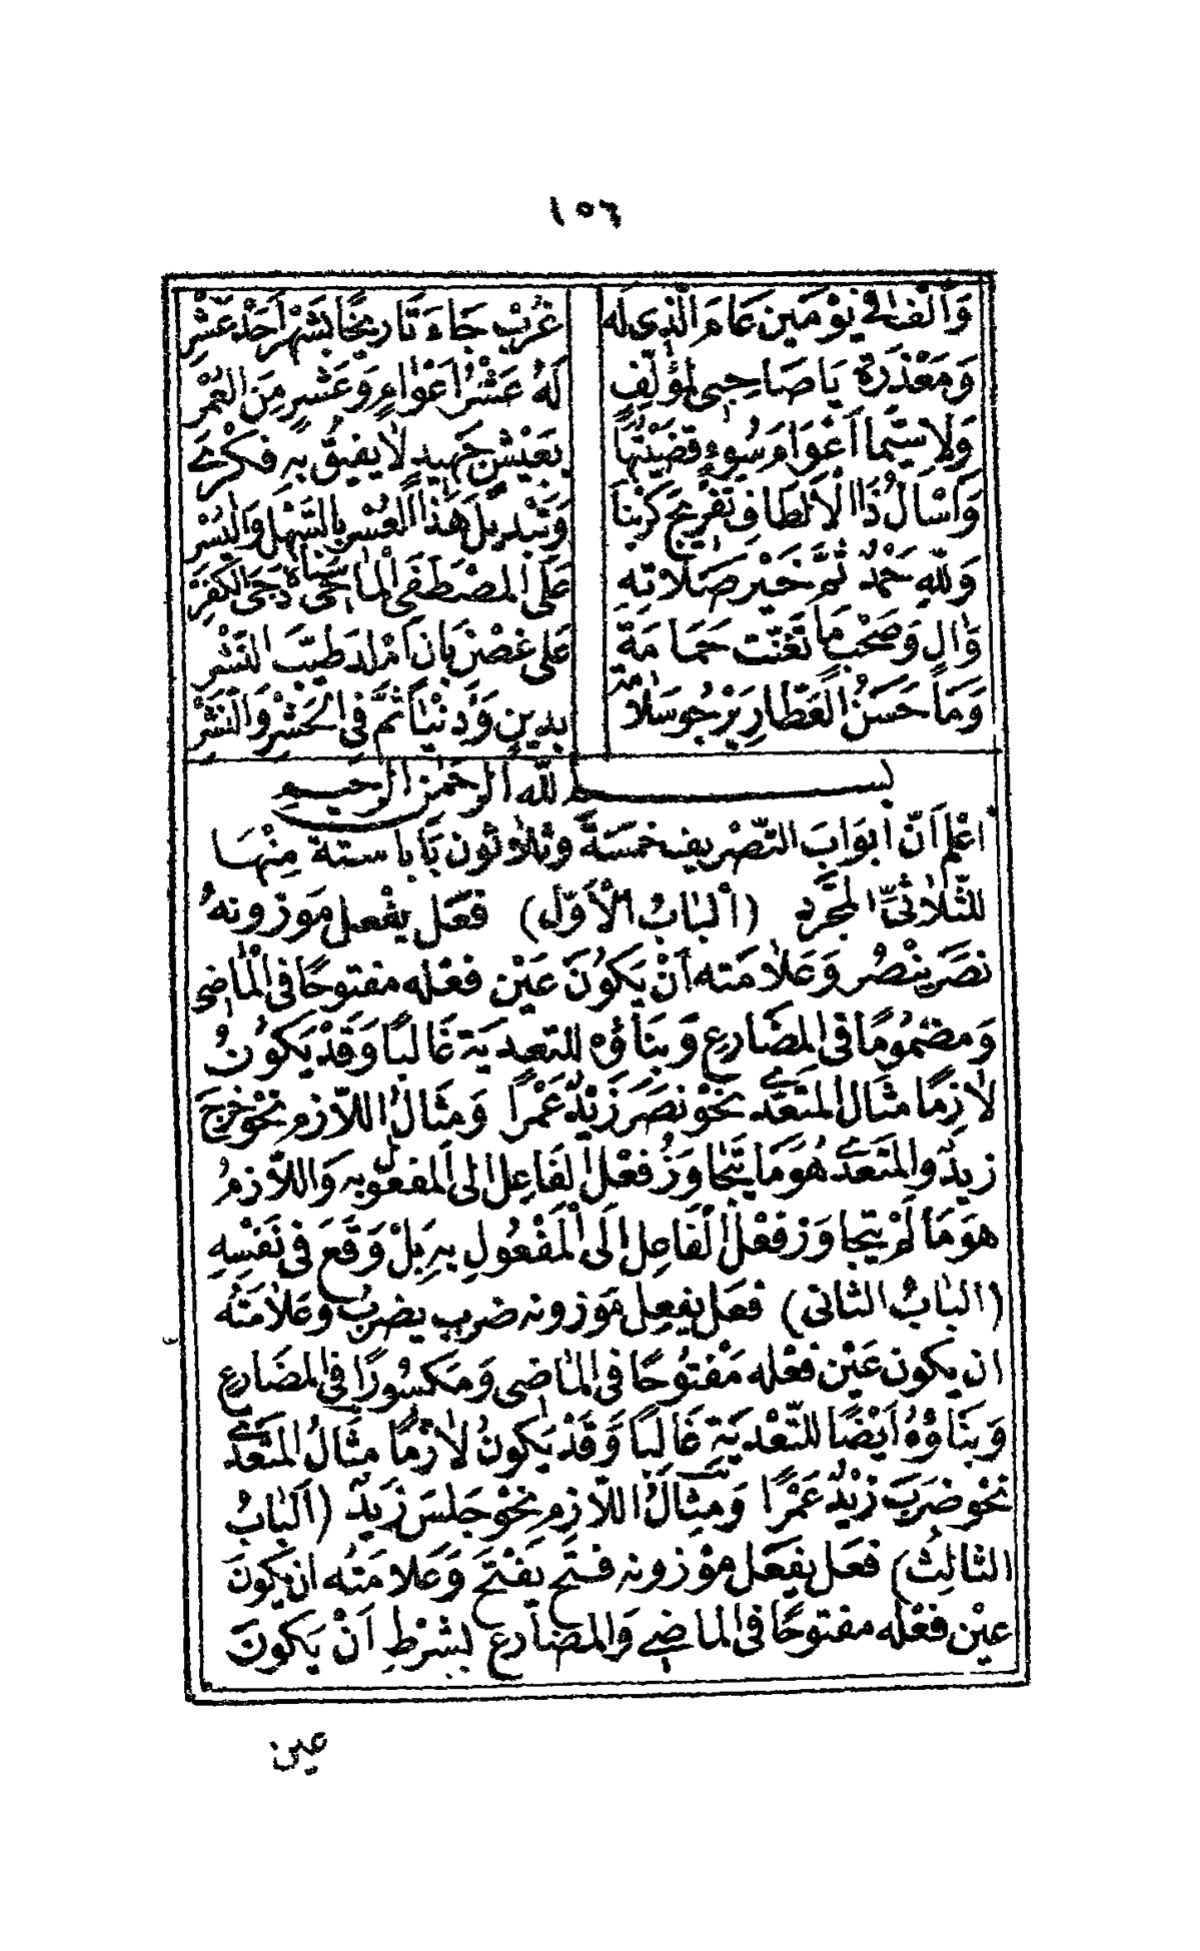 ١٥٦
وَأَلَّفْتُ فِي يَوْمَيْنِ عَامَ الَّذِي لَهُ غَرِيبٌ جَاءَ تَارِيخًا بِشَهْرِ أَحَدْ عَشْرِ
وَمَعْذِرَةً يَا صَاحِبِي لِمُؤَلِّفٍ لَهُ عَشْرُ أَعْوَامٍ وَعَشْرٍ مِنَ الْعُمْرِ
وَلَا سِيَّمَا أَعْوَامَ سُوءٍ قَضَيْتُهَا بِعَيْشٍ جَهِيدٍ لَا يَفِيقُ بِهِ فِكْرِي
وَأَسْأَلُ ذَا الْأَلْطَافِ تَفْرِيجَ كَرْبِنَا وَتَبْدِيلَ هَذَا الْعُسْرِ بِالسَّهْلِ وَالْيُسْرِ
وَلِلَّهِ حَمْدٌ ثُمَّ خَيْرُ صَلَاتِهِ عَلَى الْمُصْطَفَى الْمَاحِي سَنَاهُ دُجَى الْكُفْرِ
وَآلٍ وَصَحْبٍ مَا تَغَنَّتْ حَمَامَةٌ عَلَى غُصْنِ بَانٍ أَمْلَدٍ طَيِّبِ النَّشْرِ
وَمَا حَسَنُ الْعَطَّارِ يَرْجُو سَلَامَةً بِدِينٍ وَدُنْيَا ثُمَّ فِي الْحَشْرِ وَالنَّشْرِ
بسم الله الرحمن الرحيم
اعْلَمْ اَنَّ أَبْوَابَ التَّصْرِيفِ خَمْسَةٌ وَثَلَاثُونَ بَابًا ستة مِنْهَا
لِلثُّلَاثِيِّ الْمُجَرَّدِ (اَلْبَابُ الْأَوَّلُ) فَعَلَ يَفْعُلُ مَوْزُونُهُ
نَصَرَ يَنْصُرُ وَعَلَامَتُه أَنْ يَكُونَ عَيْن فِعْلِه مفتوحًا فى الْمَاضِى
وَمَضْمُومًا فى المضَارِعِ وَبِنَاؤُه لِلتعدِيَةِ غَالِبًا وَقَدْ يَكُونُ
لَازِمًا مثَالُ المتَعَدِّى نَحْوُ نَصَرَ زَيْدٌ عَمْرًا وَمِثَالُ اللَّازِمِ نحْوُ خَرَجَ
زيدٌ والمتَعَدِّى هُوَ مَا يَتَجَاوَزُ فعْلُ الْفَاعِلِ الى اَلْمَفْعُولِ بِه وَاللَّازِمُ
هُوَ مَا لَمْ يَتَجَاوَز فعْلُ الْفَاعِلِ إِلَى الْمَفْعُولِ بِهِ بَلْ وَقَعَ فى نَفْسِهِ
(البَابُ الثانى) فعَلَ يَفْعِل مَوْزونه ضرب يضرِبُ وَعَلَامَتُه
ان يكون عَيْن فعْله مَفْتُوحًا فى الماضى وَمَكسُورًا فى المضَارع
وَبِنَاؤُهُ أَيْضًا للتَّعْدِيَةِ غَالِبًا وَقَدْ يَكُونُ لَازِمًا مثَالُ المتَعَدِّى
نَحْوُ ضَرَبَ زَيْدٌ عَمْرًا وَمِثَالُ اللَّازِمِ نَحْوُ جَلَسَ زَيدٌ (اَلْبَابُ
الثالِثُ) فعَلَ يَفعَل مَوْزونه فتَحَ يَفْتَحُ وَعَلَامَتُه ان يكونَ
عيْن فعْلِه مفتوحًا فى الماضى وَالمضَارع بشَرْطِ اَنْ يَكونَ
عين